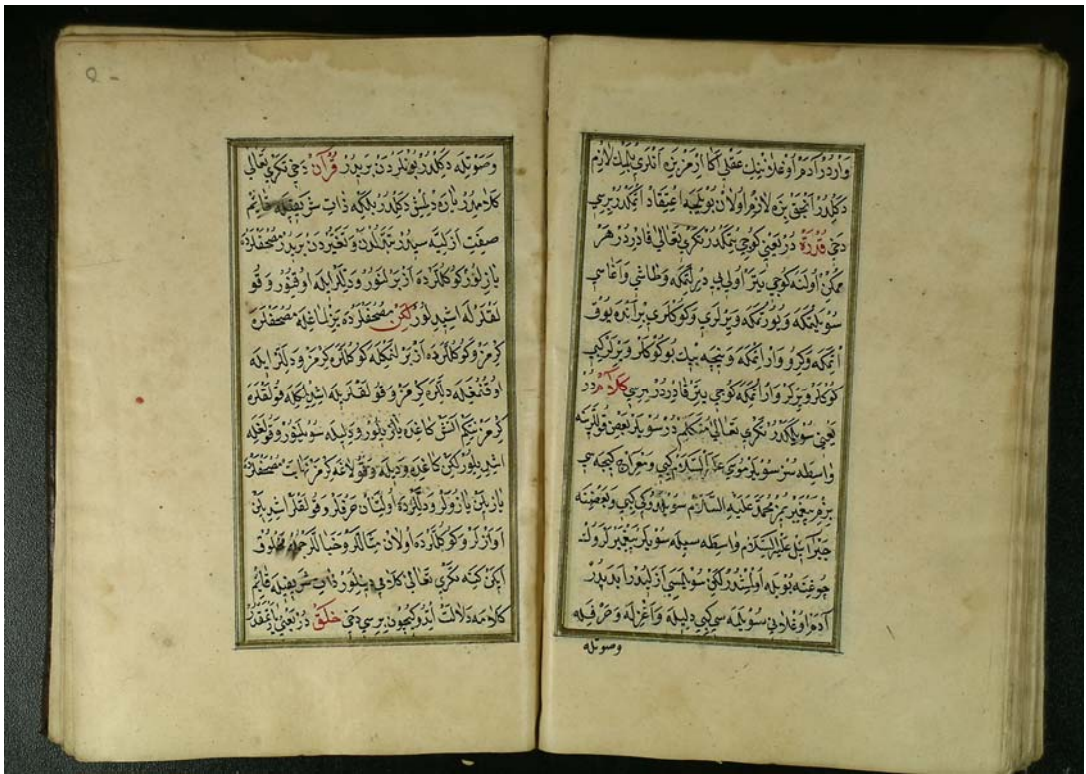 واردر آدم اوغلاننك عقلى اكا ارمز بزه آنلرى بلمك لازم
دكلدر آنجق بزه لازم اولان بويلجه اعتقاد اتمكدر برسى
دخى قدرة در يعنى كوجى يتمكدر تكرى تعالى قادردر هر
ممكن اولنه كوجى يتر اولى يى درلتمكه وطاشى وآغاسى
سويلتمكه ويورتمكه ويرلرى وكوكلرى بر آنده يوق
اتمكه وكرو وار اتمكه ونيچه بيك بو كوكلر ويرلر كبى
كوكلر ويرلر وار اتمكه كوجى يتر قادردر برسى كلام در
يعنى سويلمكدر تكرى تعالى متكلمدر سويلر بعض قوللرينه
واسطه سز سويلر موسى عليه السلام كبى ومعراج كيجه سى
بزم پيغمبرمز محمد عليه السلام سويلدوكى كبى وبعضينه
جبرآئيل عليه السلام واسطه سيله سويلر پيغمبرلروك
چوغينه بويله اولمشدر لكن سويلمسى ازليدر ابديدر
آدم اوغلانى سويلمه سى كبى دليله واغزله وحرفيله
وصوتله
وصوتله دكلدر بونلردن بريدر قرآن دخى تكرى تعالى
كلاميدر ياره دلمش دكلدر بلكه ذات شريفيله قائم
صفت ازليه سيدر تبدلدن وتغيردن بريدر مصحفلرده
يازيلور كوكللرده ازبرلنور وديللر ايله اوقنور وقو
لقلرله اشيديلور لكن مصحفلرده يزلماغله مصحفلره
كرمز وكوكللرده ازبرلنمكله كوكللره كرمز وديللر ايله
اوقنمغله دللره كرمز وقولقلريله اشيدلمكله قولقلره
كرمز نتكيم آتش كاغده يازيلور وديليله سويلنور وقولغله
اشيديلور لكن كاغده وديله وقولاغه كرمز نهايت مصحفلرده
يازيلان يازولر وديللرده اولنان حرفلر وقولقلر اشيديلن
آوازلر وكوكللرده اولان مثاللر وخياللر جمله مخلوق
ايكن كنه تكرى تعالى كلامى ديلور ذات شريفيله قائم
كلامه دلالت ايدوكيچون برسى دخى خلق در يعنى ياراتمقدر